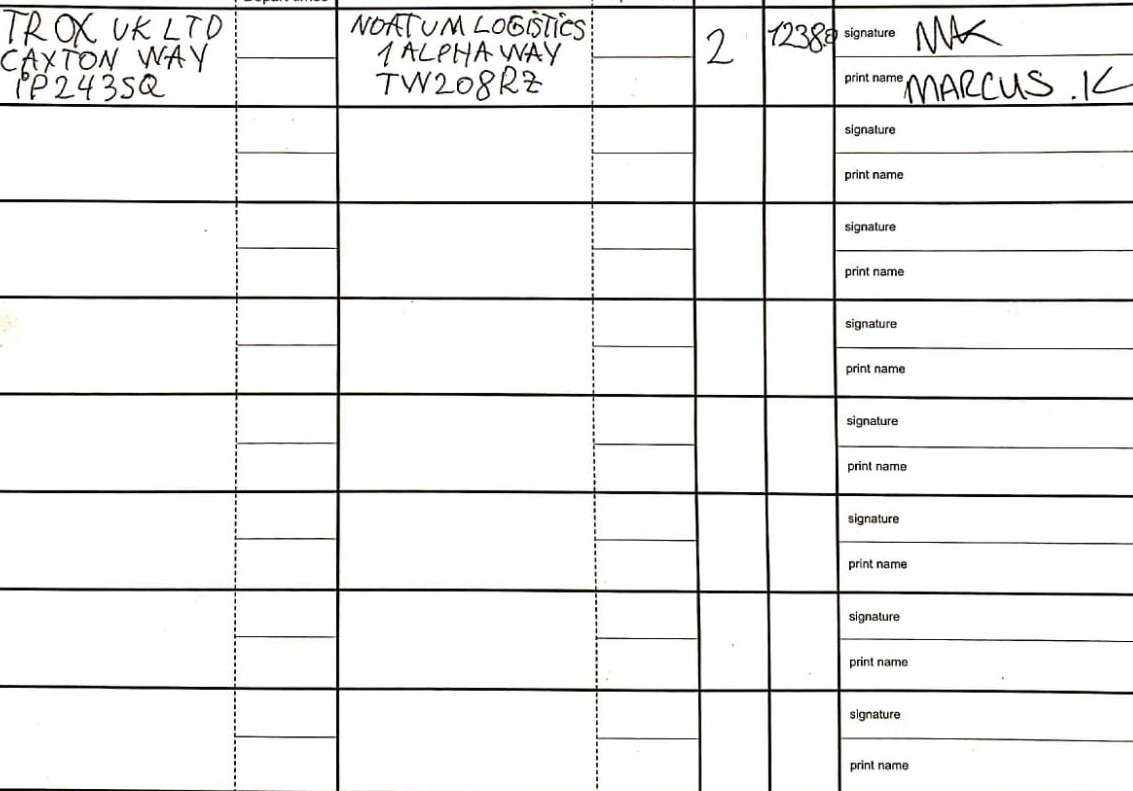 TROX UK LTD
CAXTON WAY
IP243SQ
NOATUM LOGISTICS
1 ALPHA WAY
TW208RZ
2
signature
print name MARCUS .K
signature
print name
signature
print name
signature
print name
signature
print name
signature
print name
signature
print name
signature
print name